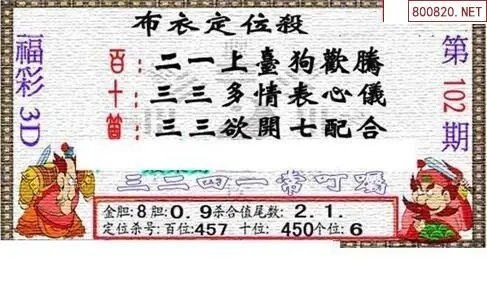 800820.NET
布衣定位殺
福彩3D
第102期
百:二一上臺狗歡騰
十:三三多情表心儀
箇:三三欲開七配合
三二四一常叮嚀
金胆:8胆:0.9杀合值尾数:2.1.
定位杀号:百位:457 十位:450个位:6